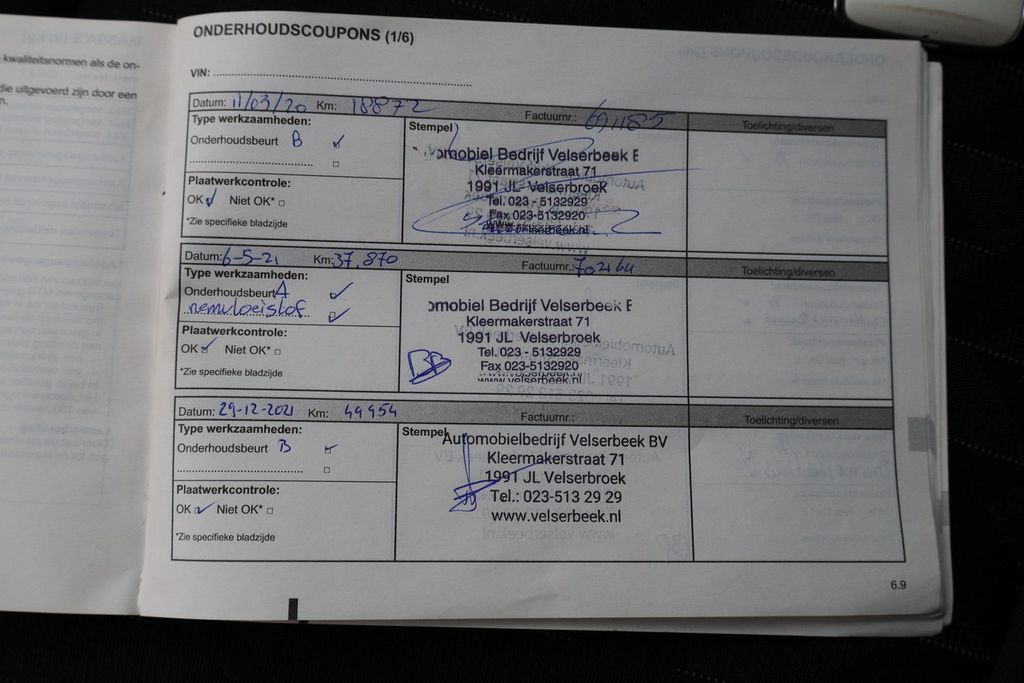 kwaliteitsnormen als de on-
die uitgevoerd zijn door een
n.
ONDERHOUDSCOUPONS (1/6)
VIN:
Datum: 11/03/20 Km: 18872 Factuurnr.: 691185 Toelichting/diversen
Type werkzaamheden:
Stempel
Onderhoudsbeurt B
omobiel Bedrijf Velserbeek B
Kleermakerstraat 71
1991 JL Velserbroek
Tel. 023 - 5132929
Fax 023-5132920
www.velserbeek.nl
Plaatwerkcontrole:
OK Niet OK*
*Zie specifieke bladzijde
Datum: 6-5-21 Km: 37.870 Factuurnr.: 702164 Toelichting/diversen
Type werkzaamheden:
Stempel
Onderhoudsbeurt A
remvloeistof
omobiel Bedrijf Velserbeek B
Kleermakerstraat 71
1991 JL Velserbroek
Tel. 023 - 5132929
Fax 023-5132920
www.velserbeek.nl
BB
Plaatwerkcontrole:
OK Niet OK*
*Zie specifieke bladzijde
Datum: 29-12-2021 Km: 49954 Factuurnr.: Toelichting/diversen
Type werkzaamheden:
Stempel
Onderhoudsbeurt B
Automobielbedrijf Velserbeek BV
Kleermakerstraat 71
1991 JL Velserbroek
Tel.: 023-513 29 29
www.velserbeek.nl
Plaatwerkcontrole:
OK Niet OK*
*Zie specifieke bladzijde
6.9